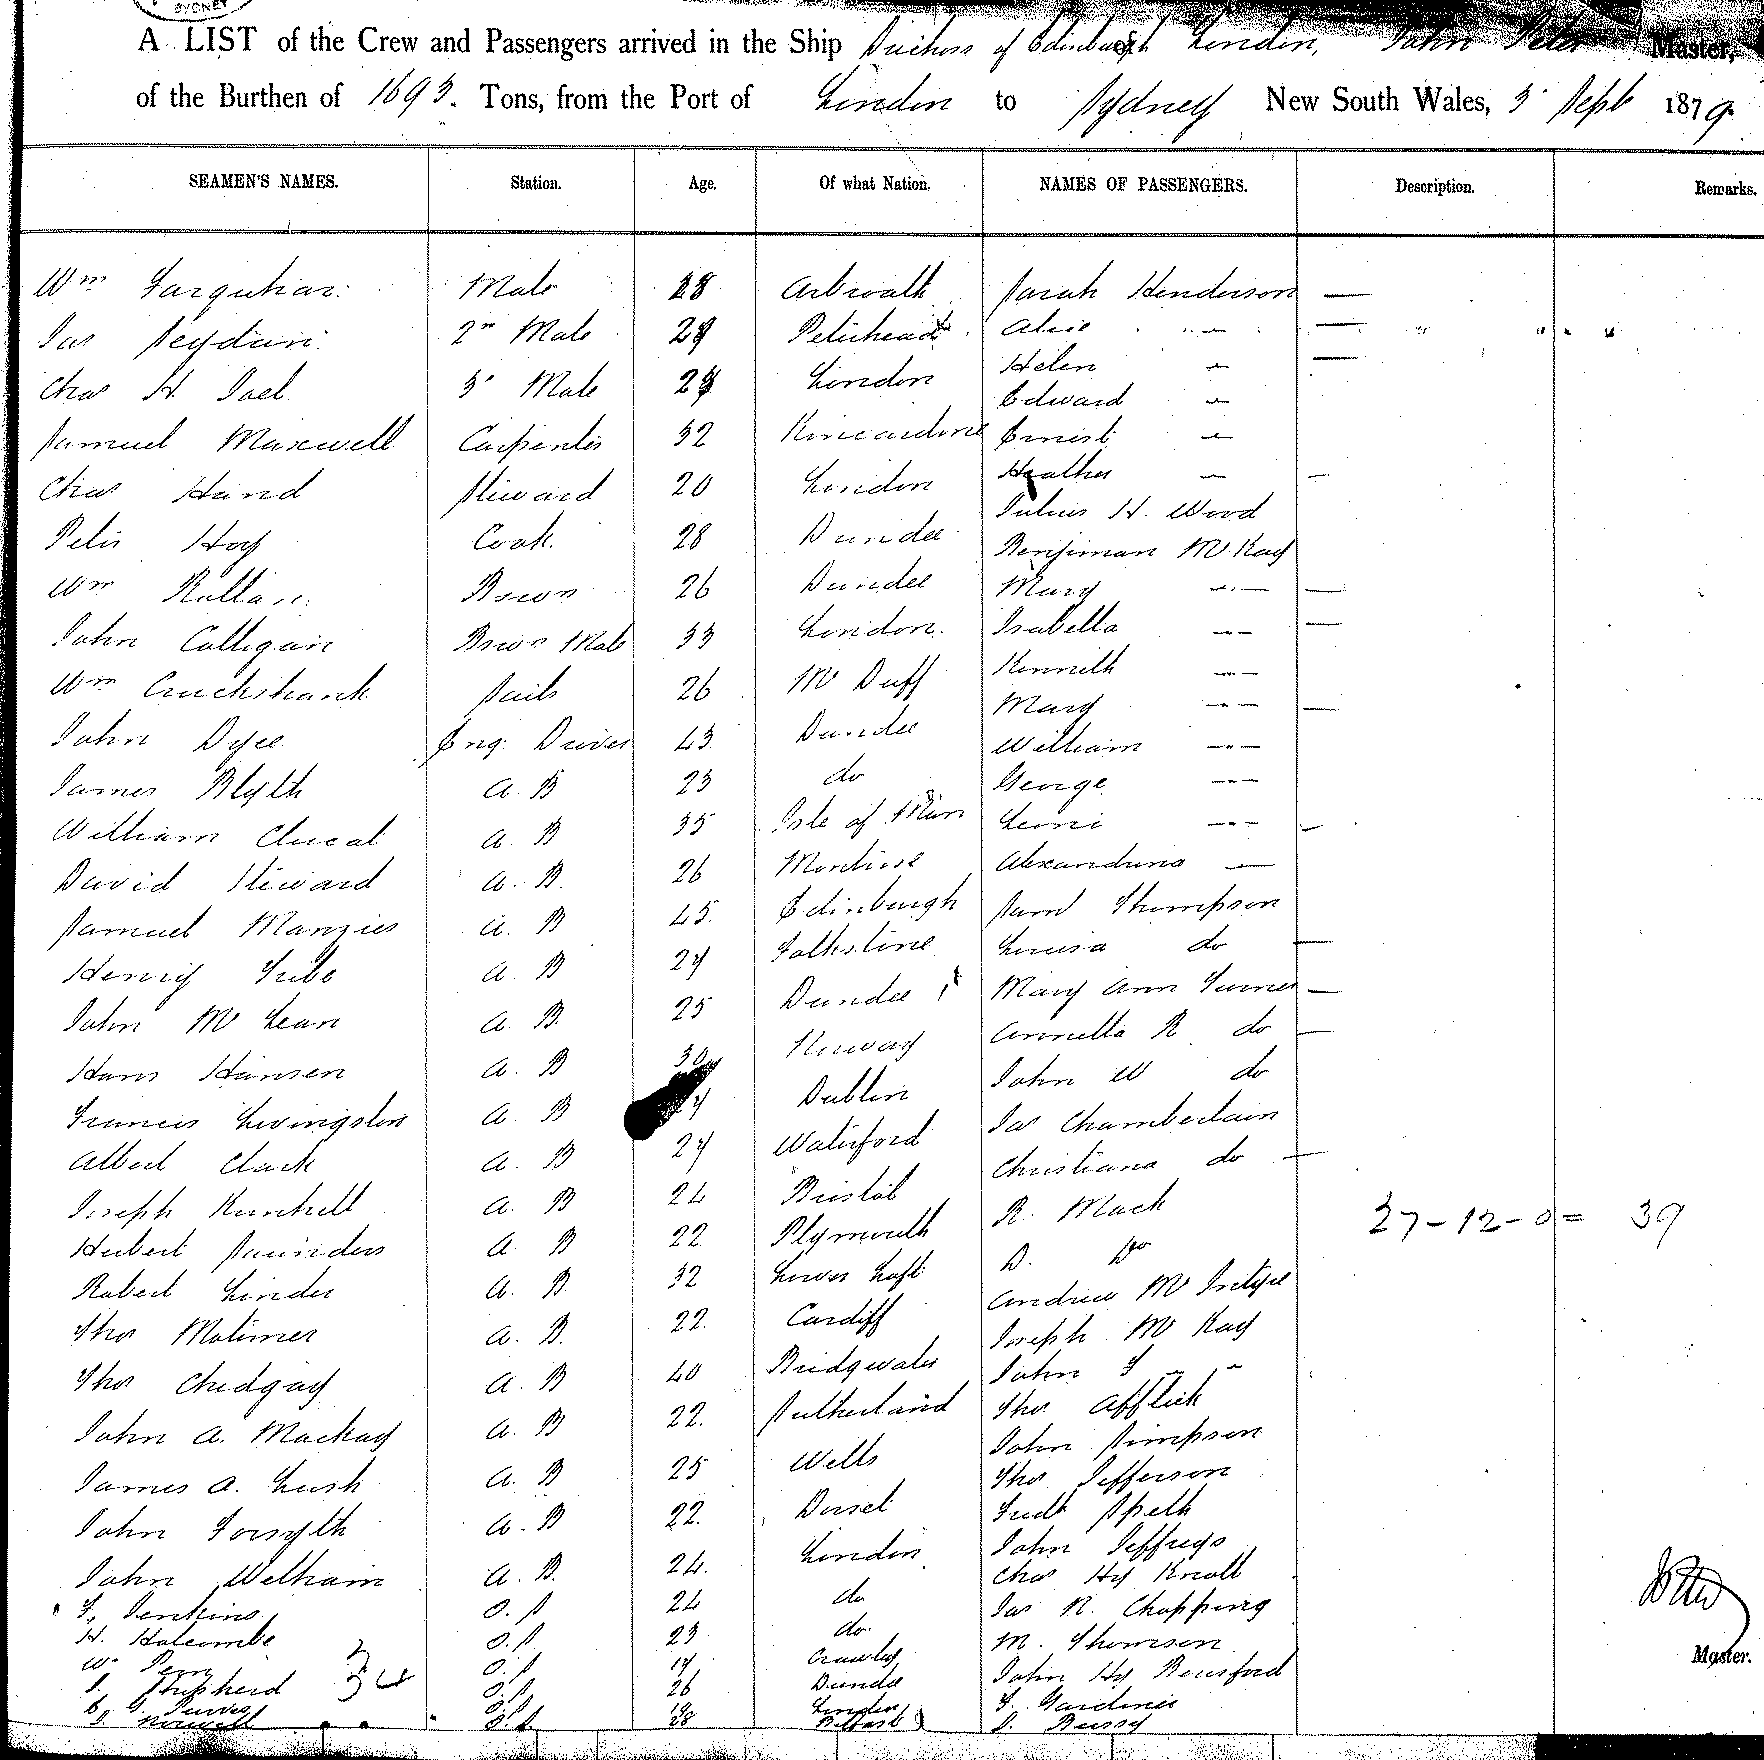 SYDNEY
A LIST of the Crew and Passengers arrived in the Ship Duchess of Edinburgh London, John Master,
of the Burthen of 1693. Tons, from the Port of London to Sydney New South Wales, 3 Sept 1879.
SEAMEN'S NAMES. Station. Age. Of what Nation. NAMES OF PASSENGERS. Description. Remarks.
Wm Farquhar Mate 28 Arbroath Sarah Henderson —
Jas 2nd Mate 29 Peterhead Alice " —
Chas H. 3 Mate London Helen — —
Edward —
Samuel Maxwell Carpenter 32 Kincardine Ernest —
Chas Hand Steward 20 London Heather — —
Julius H. Wood
Peter Hoy Cook. 28 Dundee Benjiman McKay
Wm Bosun 26 Dundee Mary — —
John Colligan Bosn Mate 33 London. Isabella — —
Wm Cruckshank Sails 26 McDuff Kenneth —
Mary — —
John Dyce Eng. Driver 43 Dundee William —
James Blyth A. B 23 do George —
William Clucal A. B 35 Isle of Man —
David Steward A. B. 26 Montrose Alexandrina —
Samuel Manzies A. B 45. Edinburgh Saml Thompson
Henry A. B 29 Folkstone Louisa do —
John McLean A. B. 25 Dundee Mary Ann Turner —
Hans Hansen A. B 30 Norway Annetta R do —
Francis Livingston A. B Dublin John W do
Albert Clark A. B 29 Waterford Jas Chamberlain
Christiana do —
Joseph A. B 24 Bristol R. Mack
27-12-0 = 39
Hubert Saunders A B 22 Plymouth D. Do
Robert Linder A. B 32 Andrew McIntyre
Thos Molimer A. B. 22. Cardiff Joseph McKay
Thos Chedgay A. B 40 Bridgwater John J " "
John A. Mackay A. B 22. Sutherland Thos Affleck
John Simpson
James A. Lush A. B 25 Wells Thos Jefferson
John Forsyth A. B 22. Dorset Fredk Speth
John Welham A. B. 24. London John Jeffreys
Chas Hy Knott
J. Jenkins O. S 24 do Jas R. Chopping
H. Holcombe O. S 23 do. M. Thomson
W. O. S John Hy Beresford
Shepherd 34 O. S. 26 Dundee J. Gardiner
London
Belfast
Master.